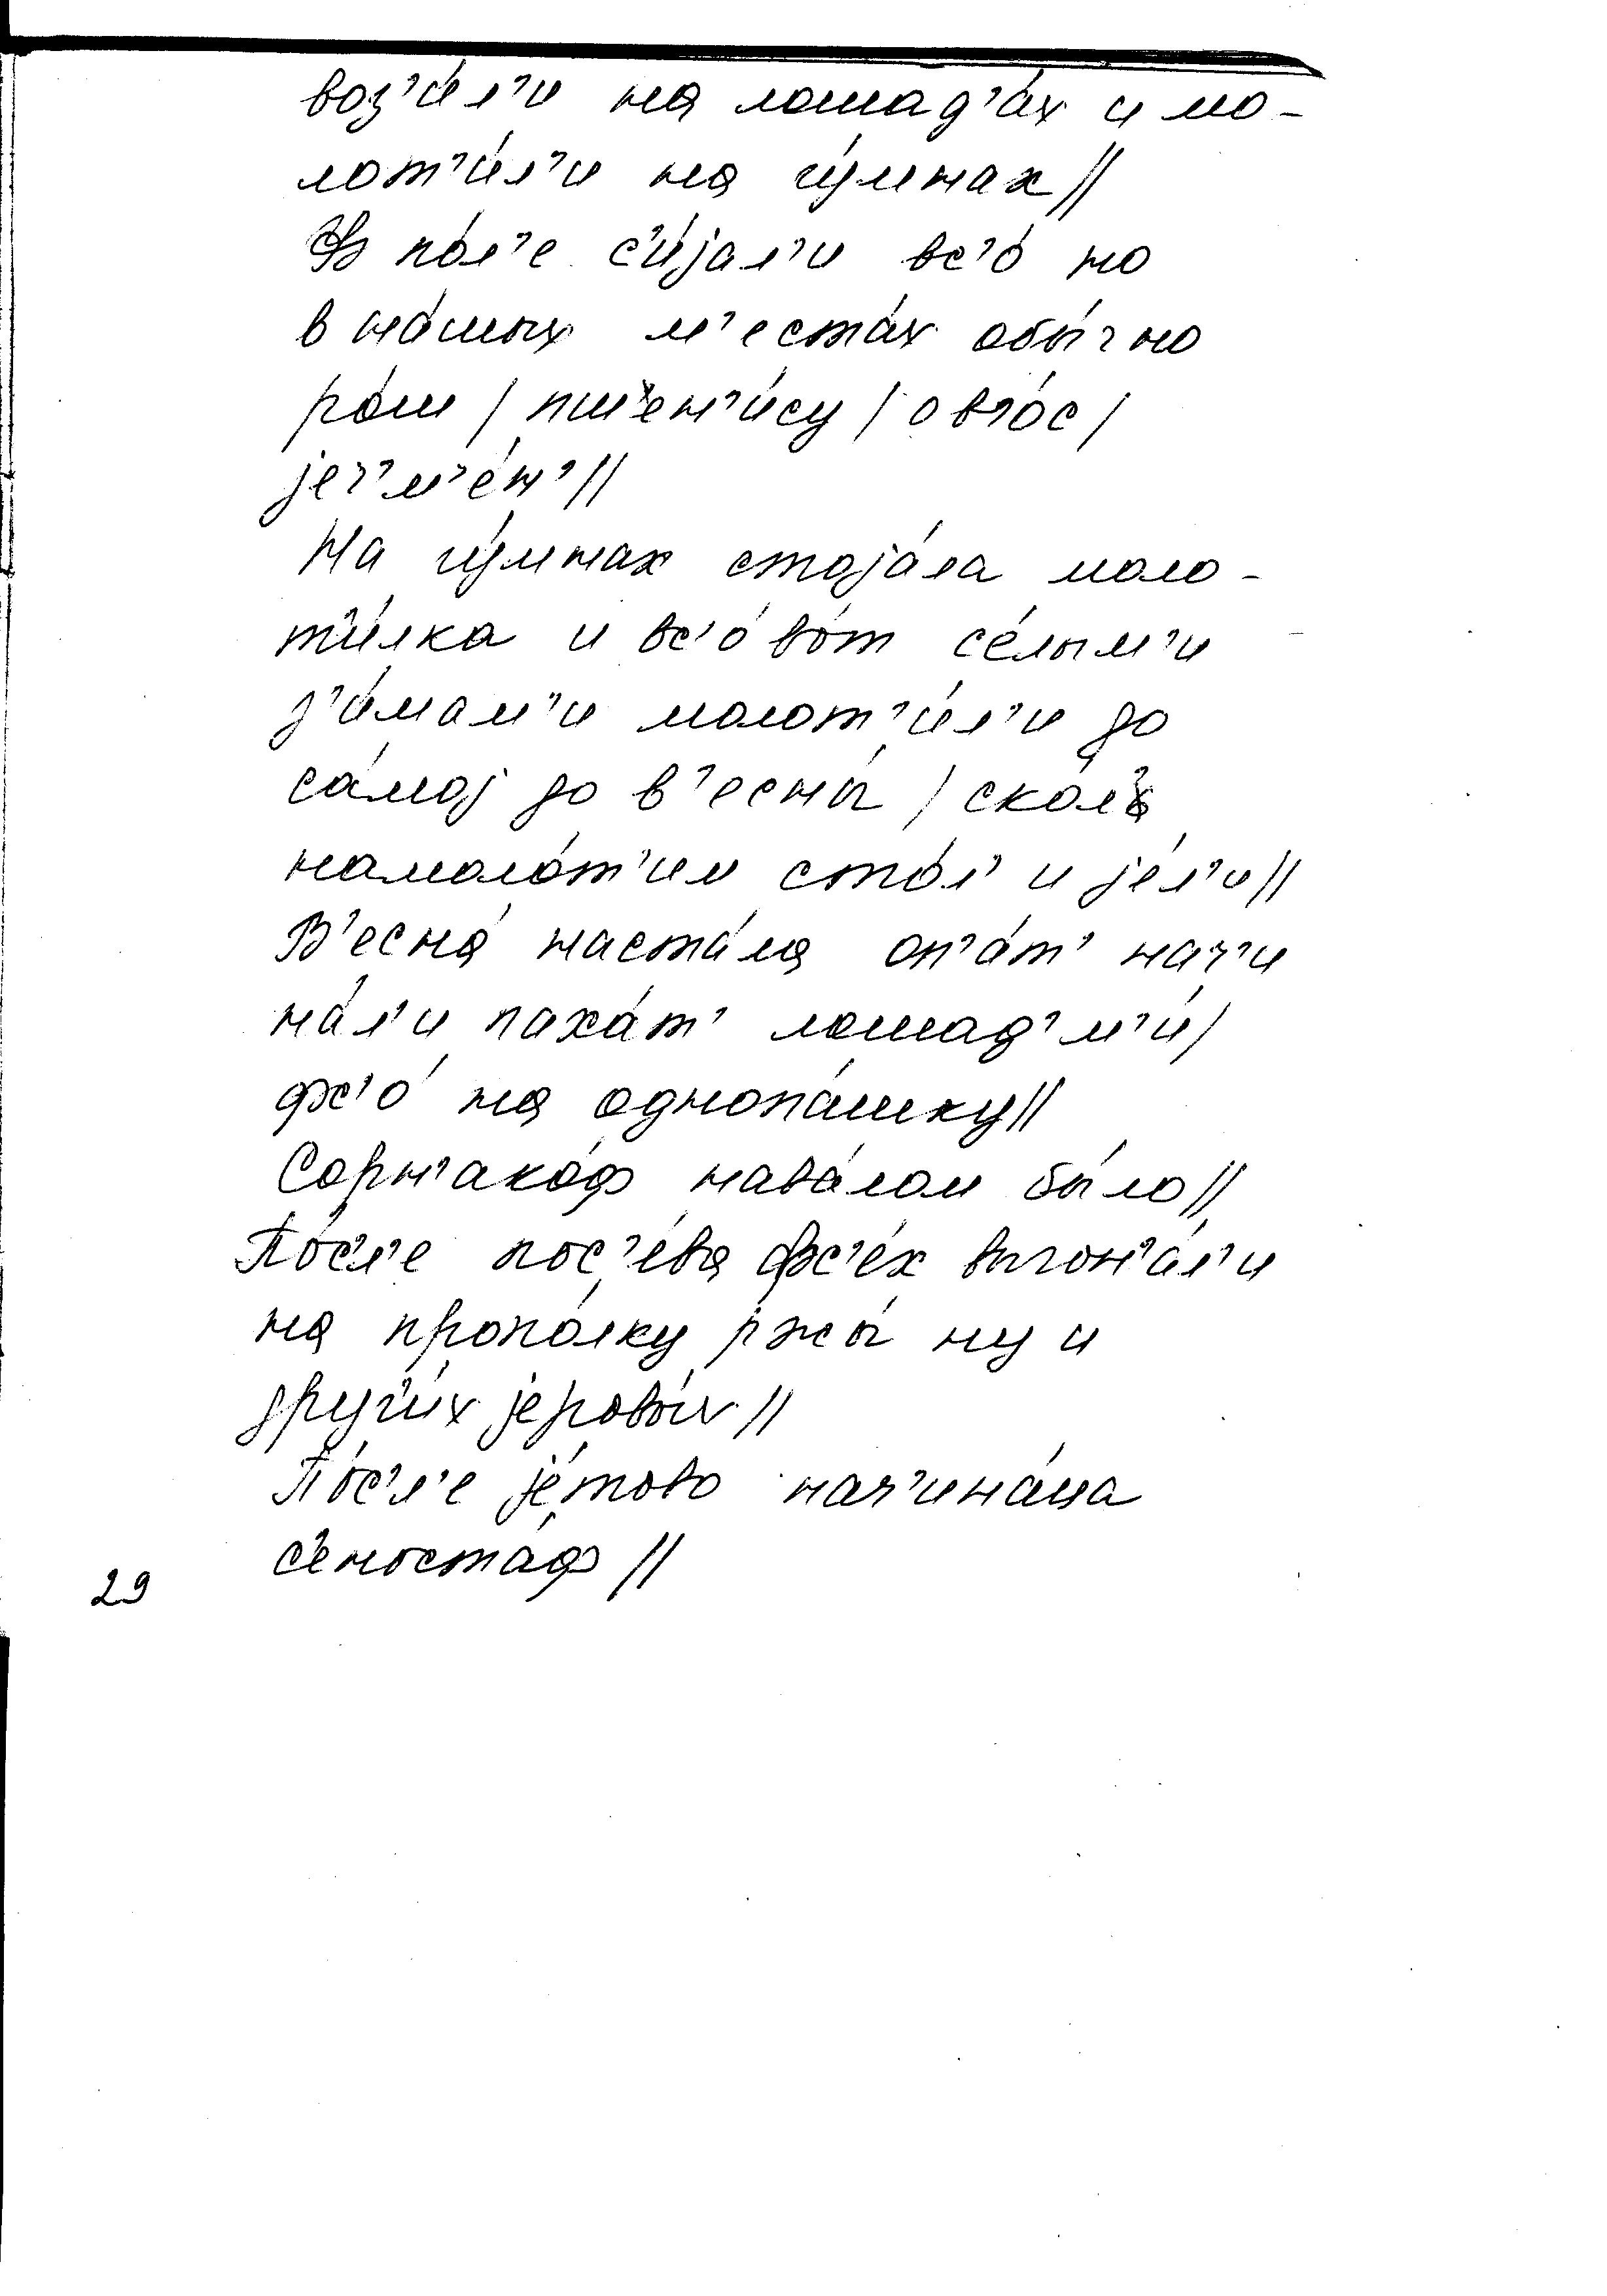 воз'и́л'и на лошад'а́х и мо-
лот'и́л'и на гу́мнах //
Ф по́л'е с'и́јал'и вс'о́ но
в на́шых м'еста́х обы́чно
ро́ш / пшен'и́су / ов'о́с /
јеч'м'е́н' //
На гу́мнах стоја́ла моло-
т'и́лка и вс'о́ во́т се́лым'и
з'и́мам'и молот'и́л'и до
са́мој до в'есны́ / скол'
намоло́т'им сто́л' и је́л'и //
В'есна́ наста́ла оп'а́т' нач'и
на́л'и паха́т' лошад'м'и́ /
фс'о́ на однопа́шку //
Сорн'ако́ф нава́лом бы́ло //
По́сл'е пос'е́ва фс'е́х выгон'а́л'и
на пропо́лку ржы́ ну и
друг'и́х јеровы́х //
По́сл'е је́тово нач'ина́ца
с'еноста́ф //
29